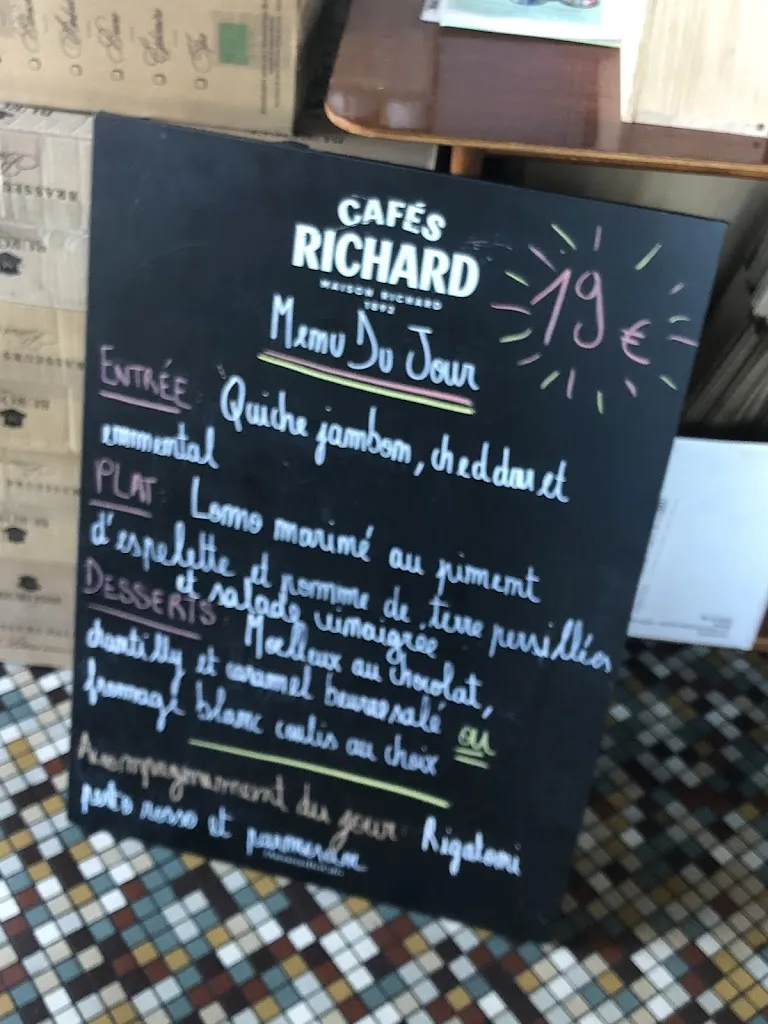 CAFÉS
RICHARD
MAISON RICHARD
1892
19 €
Menu Du Jour
ENTRÉE Quiche jambon, cheddar et
emmental
PLAT: Lomo mariné au piment
d'espelette et pomme de terre persillées
et salade vinaigrée
DESSERTS: Moelleux au chocolat,
chantilly et caramel beurre salé ou
fromage blanc coulis au choix
Accompagnement du jour: Rigatoni
pesto rosso et parmesan
BRASSERI